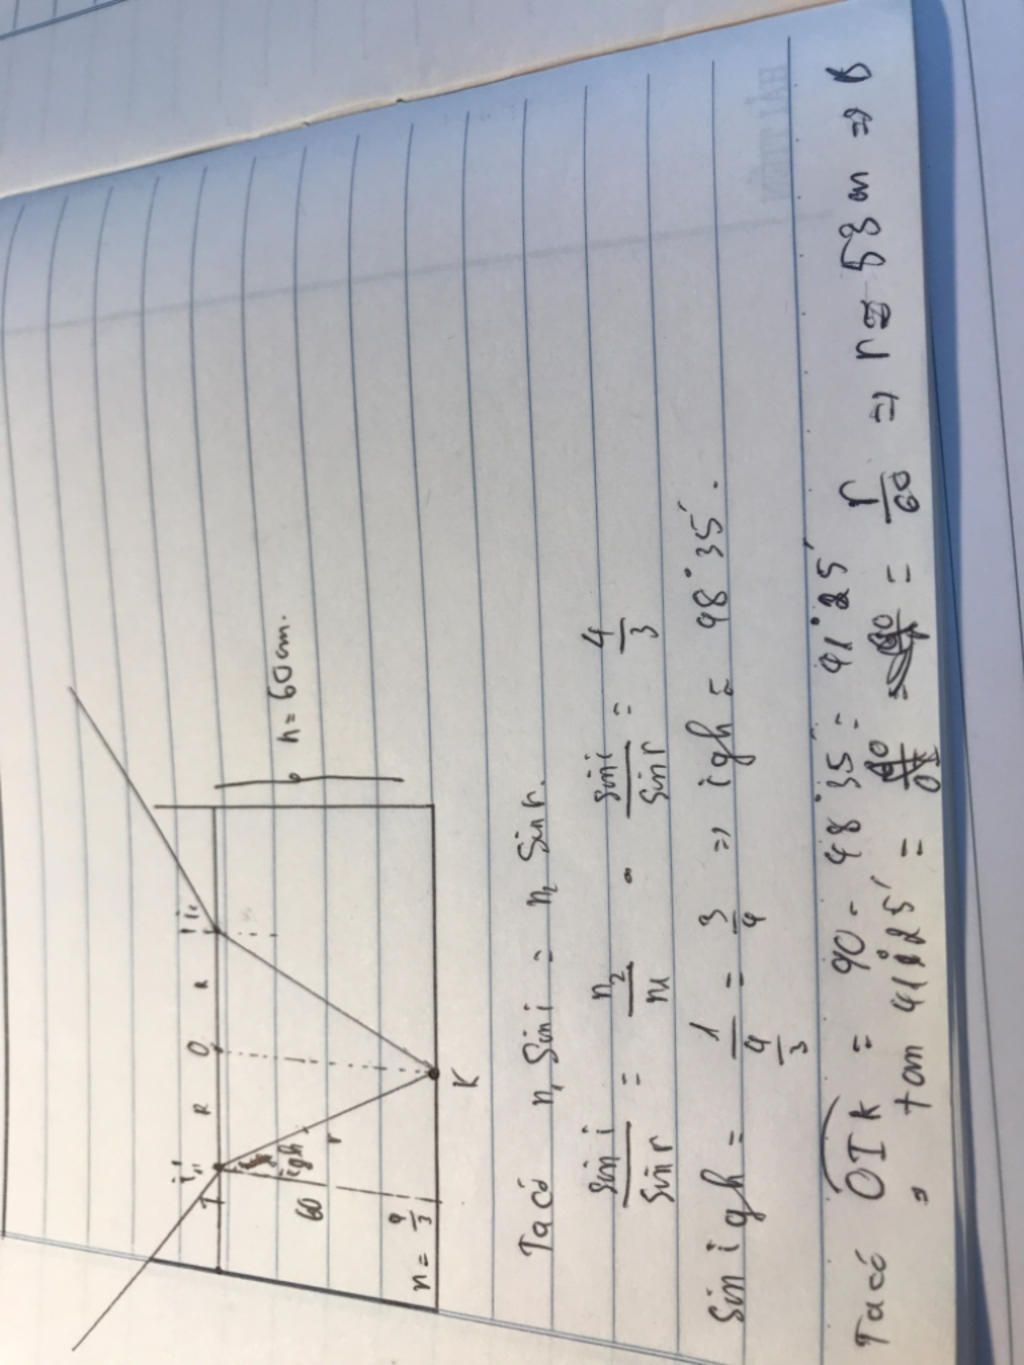 i' i'
I R O R
igh
r
60
h = 60cm.
n = 4/3
K
Ta có n₁ Sin i = n₂ Sin r.
Sin i / Sin r = n₂ / n₁ • Sin i / Sin r = 4/3
Sin igh = 1 / (4/3) = 3/4 => igh = 48°35'.
Ta có OIK = 90 - 48°35' = 41°25'
tan 41°25' = = r/60 => r = 53 m =>